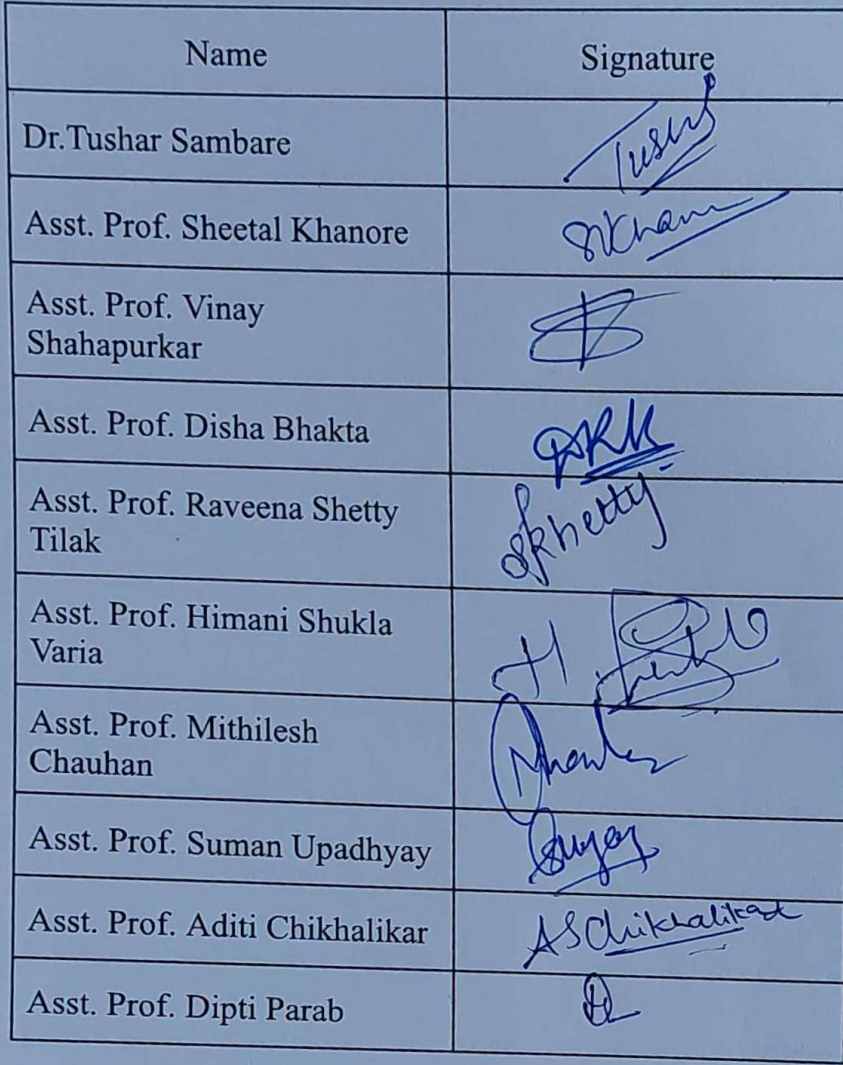 Name Signature
Dr.Tushar Sambare
Asst. Prof. Sheetal Khanore
Asst. Prof. Vinay
Shahapurkar
Asst. Prof. Disha Bhakta
Asst. Prof. Raveena Shetty
Tilak
Asst. Prof. Himani Shukla
Varia
Asst. Prof. Mithilesh
Chauhan
Asst. Prof. Suman Upadhyay
Asst. Prof. Aditi Chikhalikar ASChikhalikar
Asst. Prof. Dipti Parab